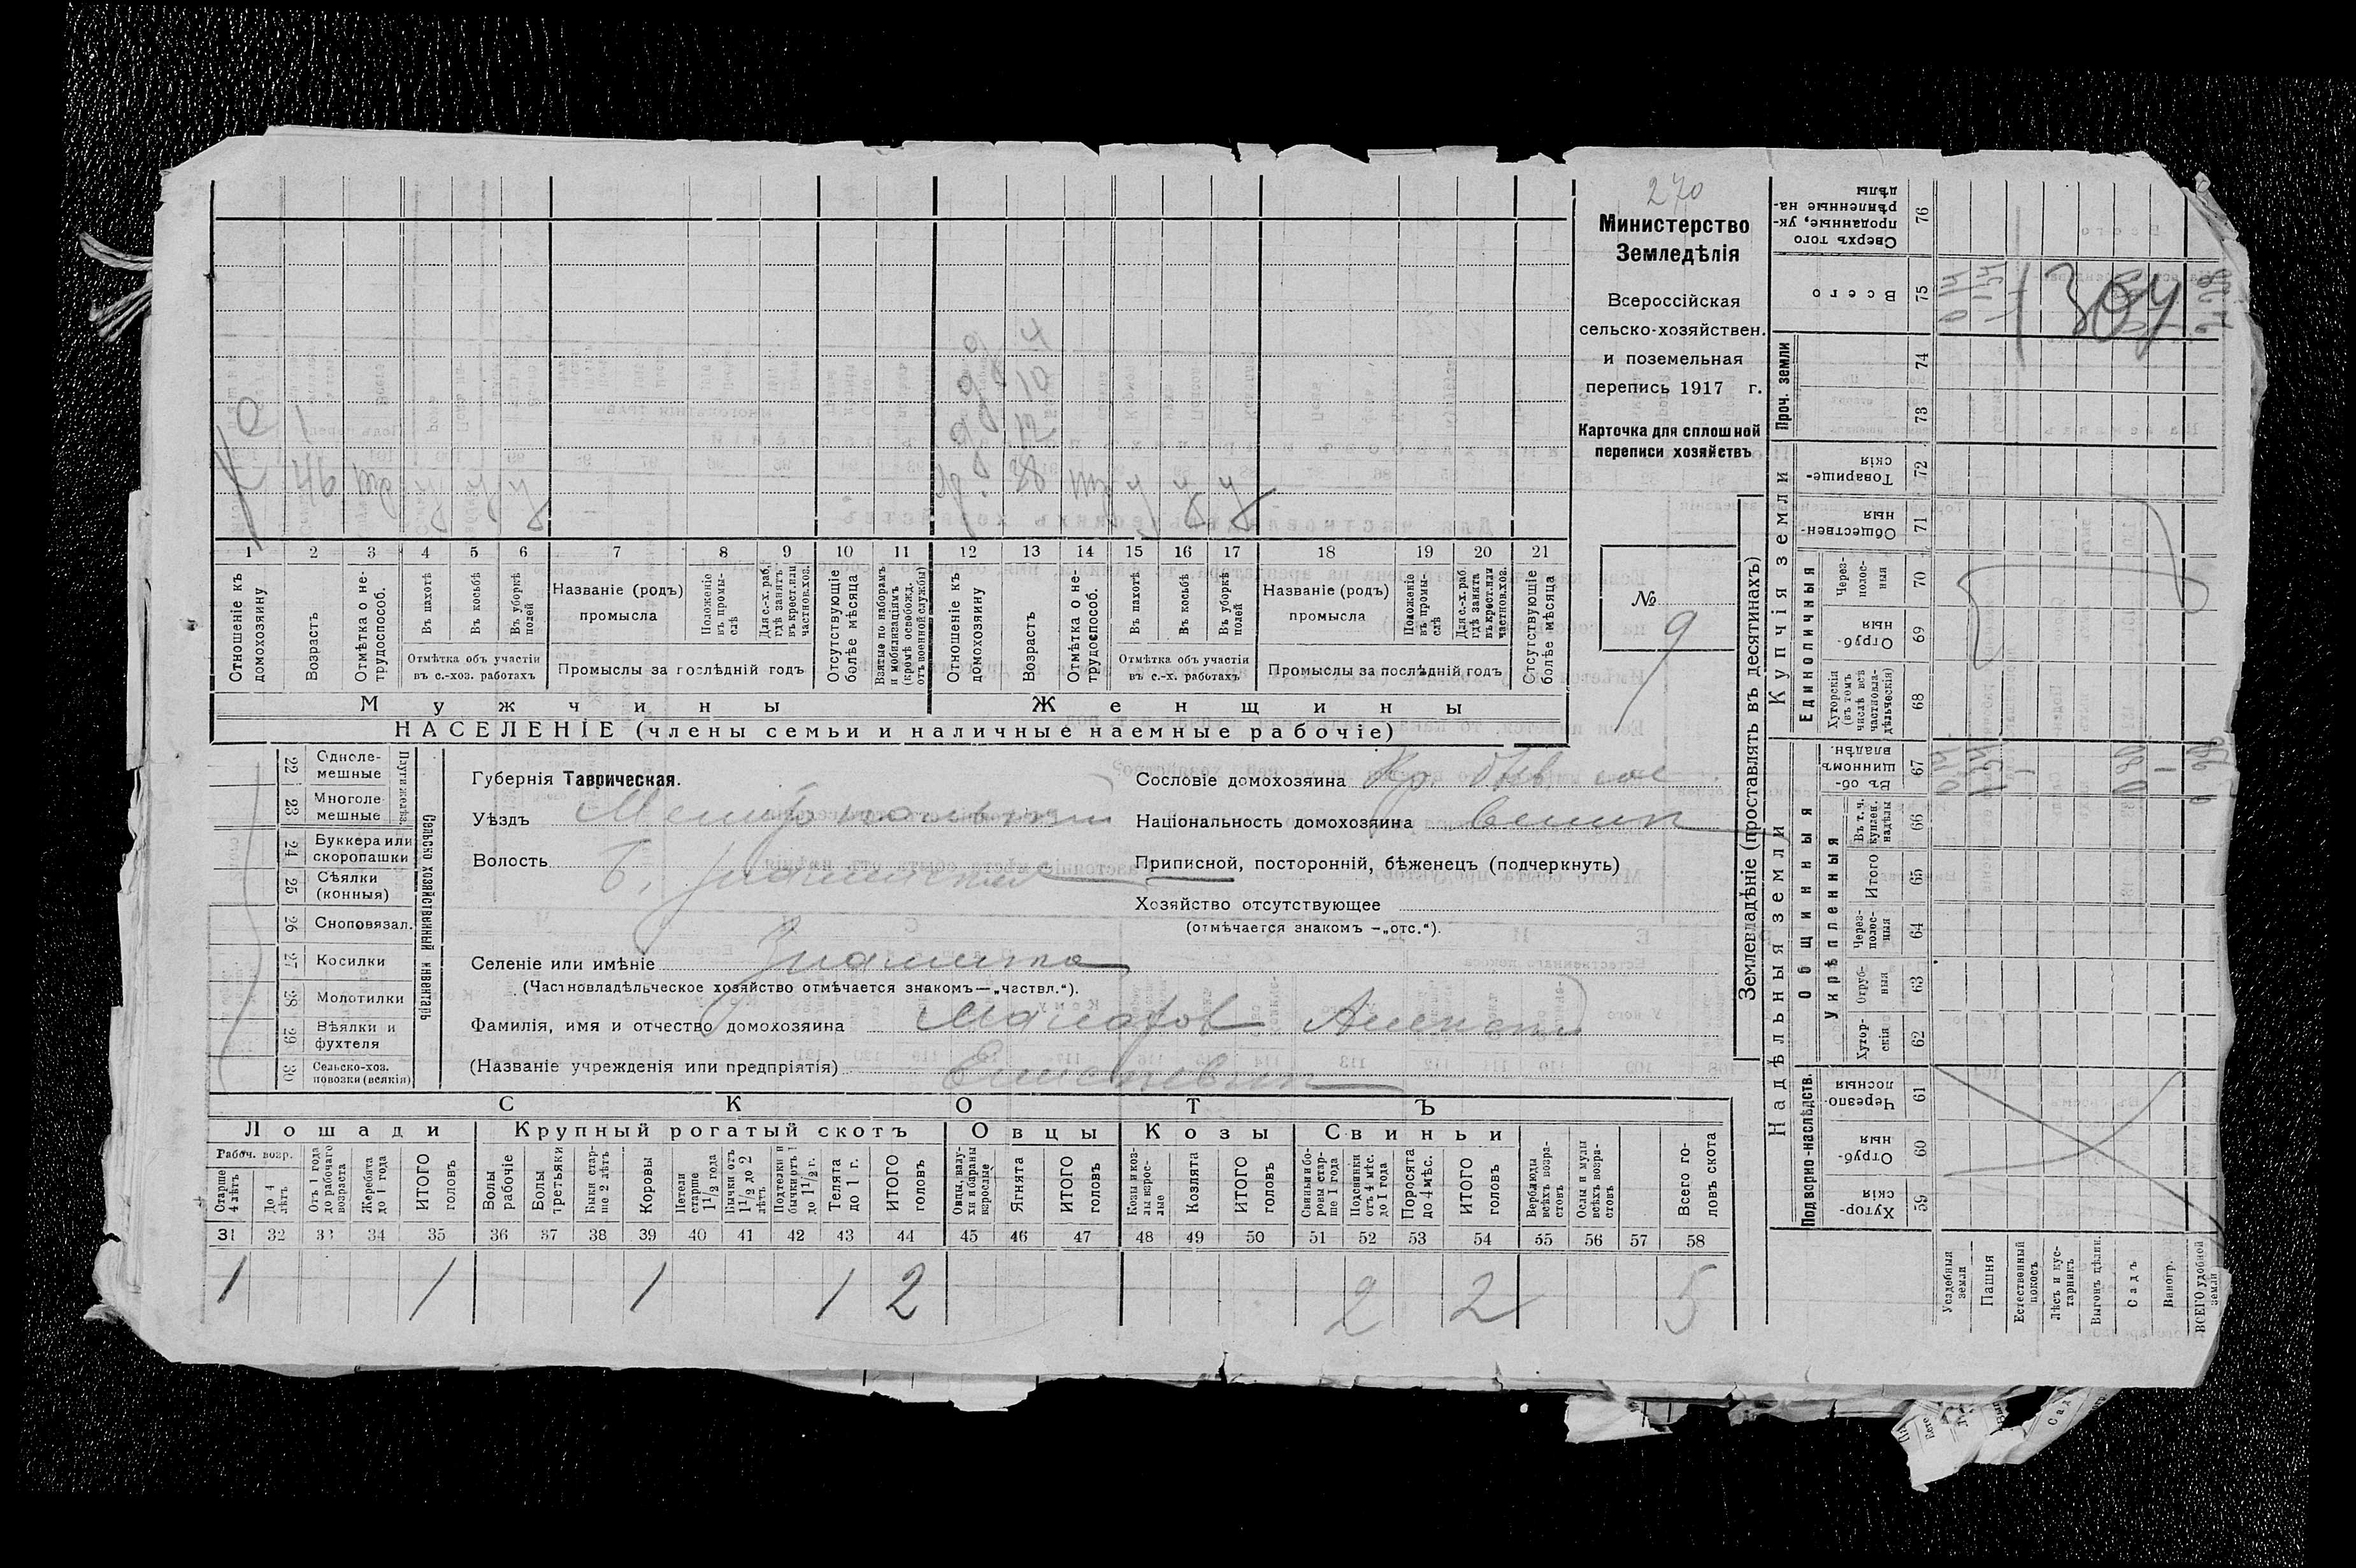 270
Министерство
Земледѣлія
Всероссійская
сельско-хозяйствен.
и поземельная
перепись 1917 г.
Карточка для сплошной
переписи хозяйствъ
№ 9
4
10
12
46
38
1 2 3 4 5 6 7 8 9 10 11 12 13 14 15 16 17 18 19 20 21
Отношеніе къ домохозяину
Возрастъ
Отмѣтка о не-трудоспособ.
Въ пахотѣ
Въ косьбѣ
Въ уборкѣ полей
Отмѣтка объ участіи въ с.-хоз. работахъ
Названіе (родъ) промысла
Положеніе въ промы-слѣ
Для с.-х. раб. гдѣ занятъ въ крест. или частнов. хоз.
Промыслы за послѣдній годъ
Отсутствующіе болѣе мѣсяца
Взятые по наборамъ и мобилизаціямъ (кромѣ освобожд. отъ военной службы)
Отношеніе къ домохозяину
Возрастъ
Отмѣтка о не-трудоспособ.
Въ пахотѣ
Въ косьбѣ
Въ уборкѣ полей
Отмѣтка объ участіи въ с.-х. работахъ
Названіе (родъ) промысла
Положеніе въ промы-слѣ
Для с.-х. раб. гдѣ занята въ крест. или частнов. хоз.
Промыслы за послѣдній годъ
Отсутствующіе болѣе мѣсяца
Мужчины
Женщины
НАСЕЛЕНІЕ (члены семьи и наличные наемные рабочіе)
22 Одноле-мешные
23 Многоле-мешные
Плуги желѣз.
24 Буккера или скоропашки
25 Сѣялки (конныя)
26 Сноповязал.
27 Косилки
28 Молотилки
29 Вѣялки и фухтеля
30 Сельско-хоз. повозки (всякія)
Сельско хозяйственный инвентарь
Губернія Таврическая.
Уѣздъ Мелитопольский
Волость Б. Знаменская
Селеніе или имѣніе Знаменка
(Частновладѣльческое хозяйство отмѣчается знакомъ—„частвл.“).
Фамилія, имя и отчество домохозяина Макаров Алексей
(Названіе учрежденія или предпріятія)
Сословіе домохозяина Кр.
Національность домохозяина
Приписной, посторонній, бѣженецъ (подчеркнуть)
Хозяйство отсутствующее
(отмѣчается знакомъ —„отс.“).
СКОТЪ
Лошади
Крупный рогатый скотъ
Овцы
Козы
Свиньи
Рабоч. возр.
Старше 4 лѣтъ
До 4 лѣтъ
Отъ 1 года до рабочаго возраста
Жеребята до 1 года
ИТОГО головъ
Волы рабочіе
Волы третьяки
Быки стар-ше 2 лѣтъ
Коровы
Нетели старше 1 1/2 года
Бычки отъ 1 1/2 до 2 лѣтъ
Подтелки и бычки отъ 1 до 1 1/2 г.
Телята до 1 г.
ИТОГО головъ
Овцы, валу-хи и бараны взрослые
Ягнята
ИТОГО головъ
Козы и коз-лы взрос-лые
Козлята
ИТОГО головъ
Свиньи и бо-ровы стар-ше 1 года
Подсвинки отъ 4 мѣс. до 1 года
Поросята до 4 мѣс.
ИТОГО головъ
Верблюды всѣхъ возра-стовъ
Ослы и мулы всѣхъ возра-стовъ
Всего го-ловъ скота
31 32 33 34 35 36 37 38 39 40 41 42 43 44 45 46 47 48 49 50 51 52 53 54 55 56 57 58
1 1 1 1 2 2 2 5
Землевладѣніе (проставлять въ десятинахъ)
Надѣльныя земли
Купчія земли
Проч. земли
Подворно-наслѣдств.
Общинныя
Укрѣпленныя
Единоличныя
Хутор-скія 59
Отруб-ныя 60
Черезпо-лосныя 61
Хутор-скія 62
Отруб-ныя 63
Через-полос-ныя 64
ИТОГО 65
Въ т. ч. куплен. надѣлы 66
Въ об-щинномъ владѣн. 67
Хуторскія (въ томъ числѣ всѣ частновла-дѣльческія) 68
Отруб-ныя 69
Через-полос-ныя 70
Обществен-ныя 71
Товарище-скія 72
73
74
Всего 75
Сверхъ того проданные, ук-рѣпленные на-дѣлы 76
Усадебныя земли
Пашня
Естественный покосъ
Лѣсъ и кус-тарникъ
Выгонъ цѣлин.
Садъ
Виногр.
ВСЕГО удобной земли